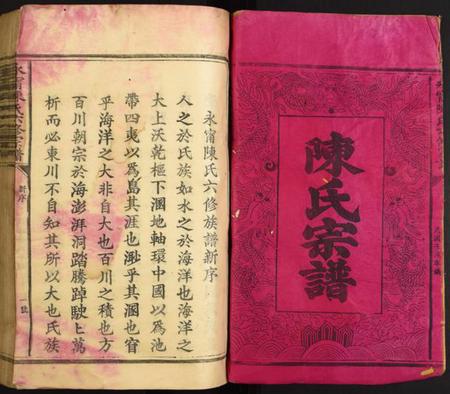 陳氏宗譜
永甯陳氏六修族譜新序
人之於氏族如水之於海洋也海洋之
大上沃乾樞下涸地軸環中國以為池
帶四夷以為島其涯也渺乎其涸也窅
乎海洋之大非自大也百川之積也方
百川朝宗於海澎湃洞踏騰踔駛上萬
析而必東川不自知其所以大也氏族
永甯陳氏六修宗譜
新序
一